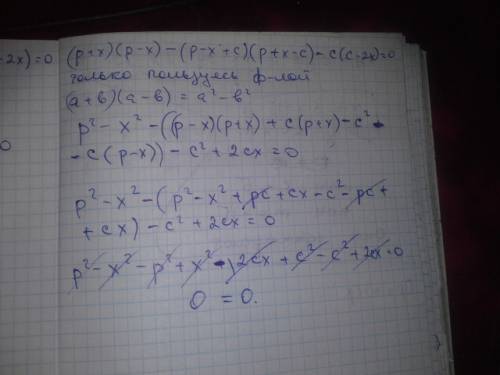 -2x)=0
(p+x)(p-x)-(p-x+c)(p+x-c)-c(c-2x)=0
только пользуясь ф-лой
(a+b)(a-b)=a²-b²
p²-x²-((p-x)(p+x)+c(p+x)-c²-
-c(p-x))-c²+2cx=0
p²-x²-(p²-x²+pc+cx-c²-pc+
+cx)-c²+2cx=0
p²-x²-p²+x²-2cx+c²-c²+2cx=0
0=0.